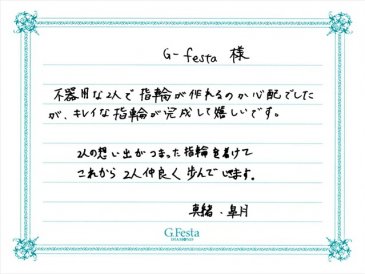 G-festa 様
不器用な2人で指輪が作れるのか心配でした
が、キレイな指輪が完成して嬉しいです。
2人の想い出がつまった指輪を着けて
これから2人仲良く歩んでいきます。
真緒・皐月
G.Festa